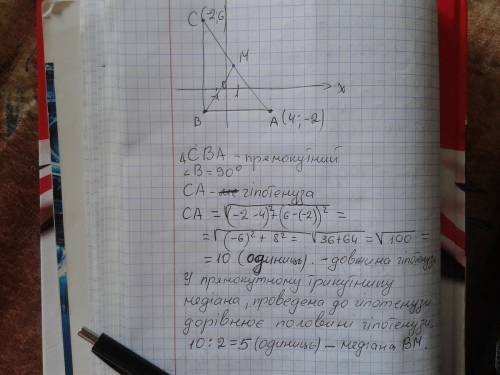 C (-2,6)
M
-1 0 1 x
B A (4;-2)
△CBA - прямокутний
∠B = 90°
CA - гіпотенуза
CA = √(-2-4)²+(6-(-2))² =
= √(-6)² + 8² = √36+64 = √100 =
= 10 (одиниць). - довжина гіпотенузи
У прямокутному трикутнику
медіана, проведена до гіпотенузи
дорівнює половині гіпотенузи.
10 : 2 = 5 (одиниць) - медіана BM.